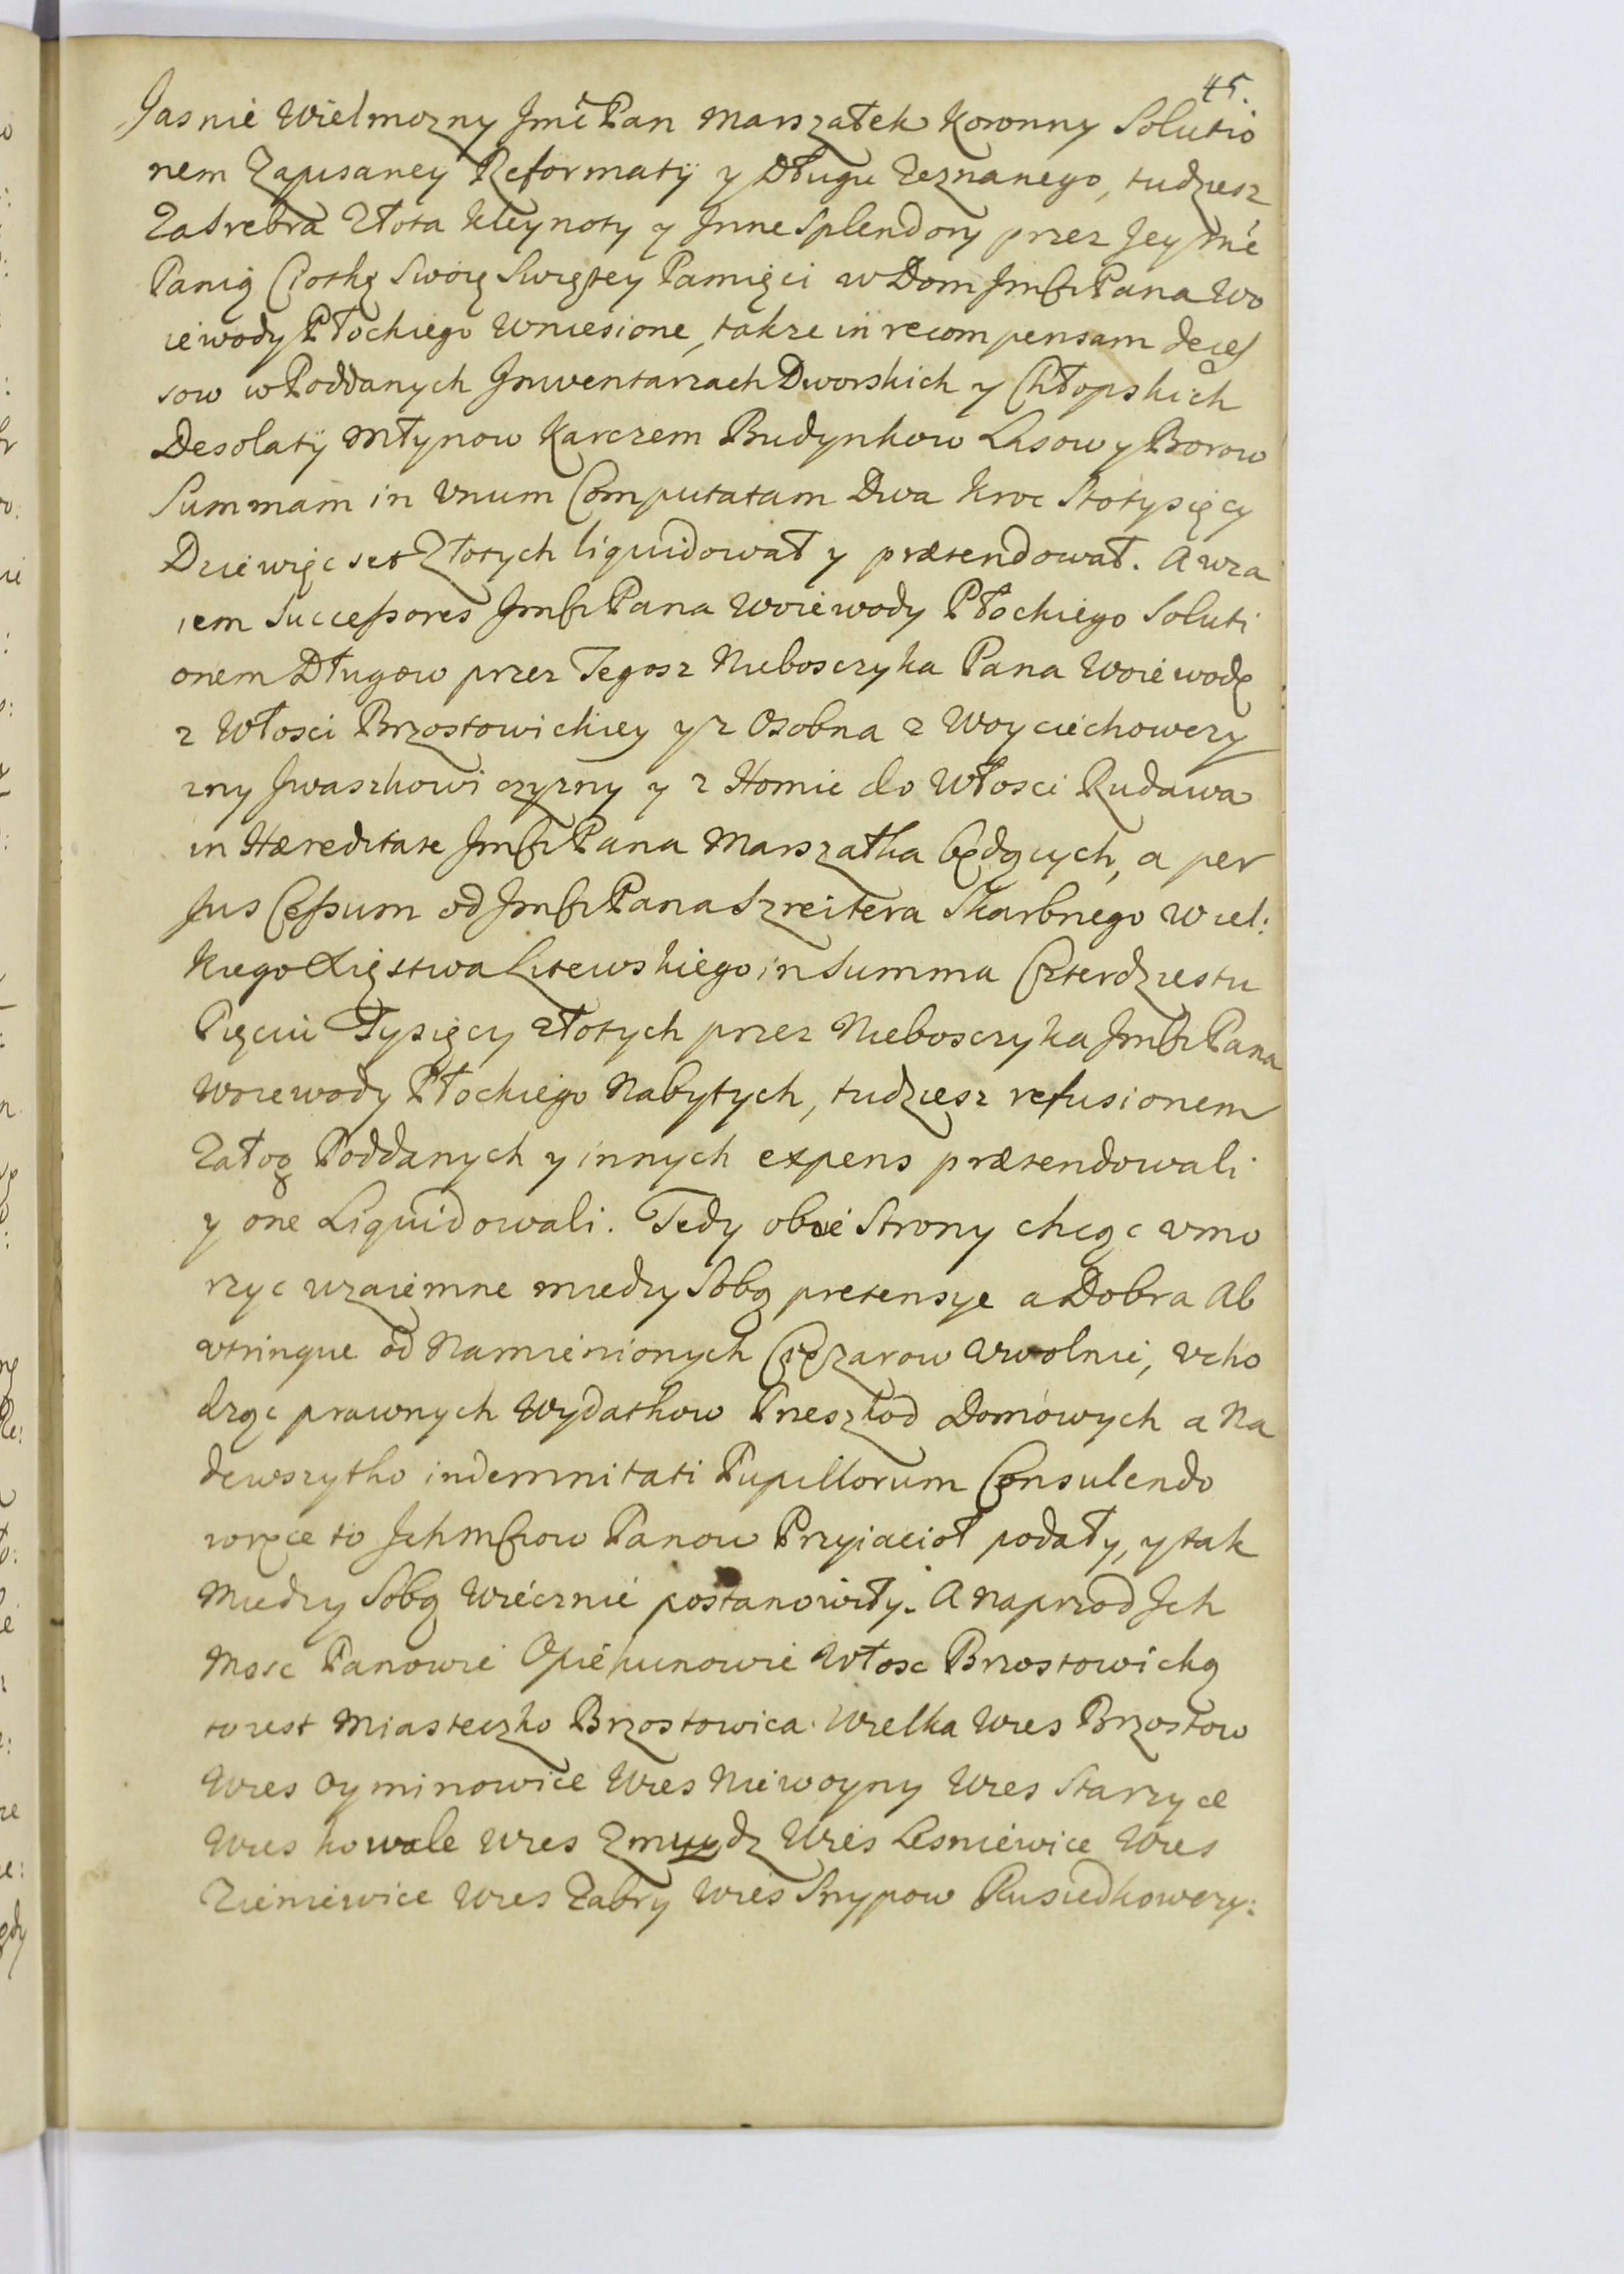 45.
Jasnie Wielmozny Jmć Pan Marszałek Koronny Solutio
nem Zapisaney Reformatÿ y Długu Zeznanego, tudziesz
Za Srebra Złota Kleynoty y Jnne Splendory przez Jey Mć
Panią Ciotkę Swoię Swiętey Pamięci w Dom Jmści Pana Wo
iewody Płockiego Wniesione, takze in recompensam deces
sow w Poddanych Jnwentarzach Dworskich y Chłopskich
Desolatÿ Młynow Karczem Budynkow Lasow y Borow
Summam in Vnum Computatam Dwa kroc Stotysięcy
Dziewięc set Złotych liquidował y prætendował. A wza
iem Successores Jmści Pana Woiewody Płockiego Soluti
onem Długow przez Tegosz Nieboszczyka Pana Woiewodę
z Włosci Brzostowickiey y z Osobna z Woyciechowczy
zny Jwaszkowiczyzny y z Homic do Włosci Rudawa
in Hæreditate Jmści Pana Marszałka będących, a per
Jus Cessum od Jmści Pana Szreitera Skarbnego Wiel:
kiego Xięstwa Litewskiego in Summa Czterdziestu
Pięciu Tysięcy złotych przez Nieboszczyka Jmści Pana
Woiewody Płockiego Nabytych, tudziesz refusionem
Załog Poddanych y innych expens prætendowali
y one Liquidowali. Tedy obie Strony chcąc vmo
rzyc wzaiemne miedzy Sobą pretensye a Dobra Ab
vtrinque od Namienionych Cięzarow Vwolnic, vcho
dząc prawnych Wydatkow Przeszkod Domowych a Na
dewszytko indemnitati Pupillorum Consulendo
w ręce to Jchmściow Panow Przyiacioł podały, y tak
Miedzy Sobą Wiecznie postanowiły. A Naprzod Jch
Mosc Panowie Opiekunowie Włosc Brzostowicką
to iest Miasteczko Brzostowica Wielka Wies Brzostow
Wies Oyminowice Wies Niewoyny Wies Starzyce
Wies kowale Wies Zmuydz Wies Lesniewice Wies
Zieniewice Wies Zabry Wies Snypow Rusiedkowczy: